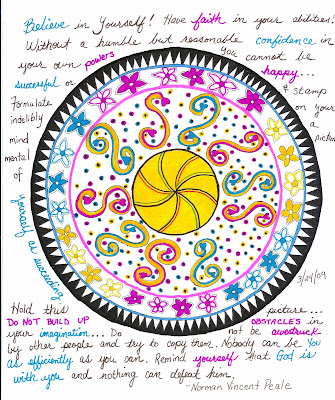 Believe in Yourself! Have faith in your abilities!
Without a humble but reasonable confidence in
your own powers you cannot be
successful or happy...
Formulate & stamp
indelibly on your
mind a
mental picture
of
yourself as succeeding
3/24/09
Hold this picture...
DO NOT BUILD UP OBSTACLES in
your imagination... Do not be awestruck
by other people and try to copy them. Nobody can be You
as efficiently as you can. Remind yourself that God is
with you and nothing can defeat him.
-Norman Vincent Peale